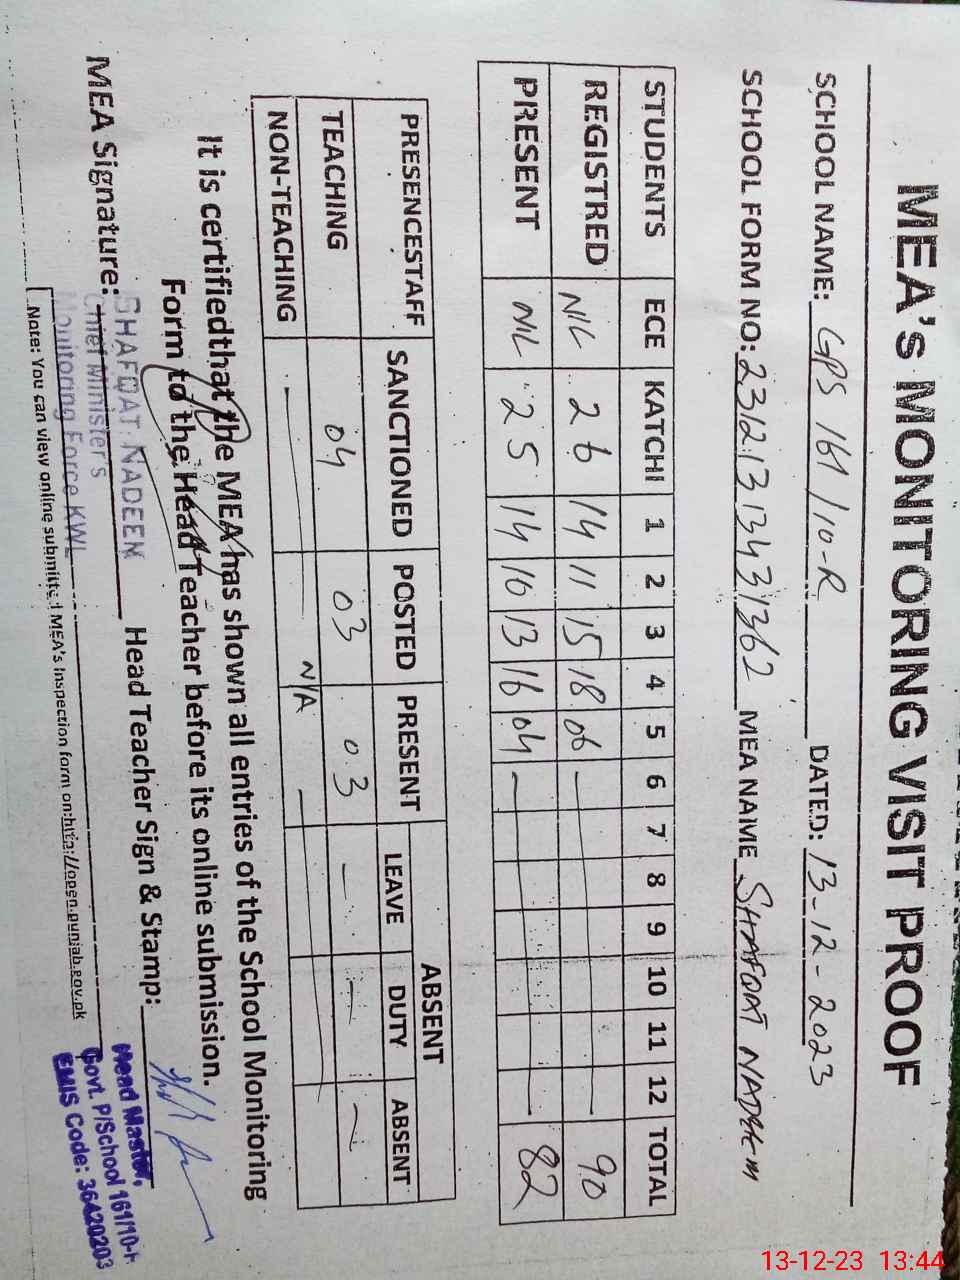 MEA's MONITORING VISIT PROOF
SCHOOL NAME: GPS 161/10-R DATED: 13-12-2023
SCHOOL FORM NO: 23121313431362 MEA NAME SHAFQAT NADEEM
STUDENTS ECE KATCHI 1 2 3 4 5 6 7 8 9 10 11 12 TOTAL
REGISTRED NIL 26 14 11 15 18 06 — 90
PRESENT NIL 25 14 10 13 16 04 — 82
PRESENCESTAFF SANCTIONED POSTED PRESENT ABSENT
LEAVE DUTY ABSENT
TEACHING 04 03 03 — — —
NON-TEACHING — N/A —
It is certifiedthat the MEA has shown all entries of the School Monitoring
Form to the Head Teacher before its online submission.
MEA Signature: Head Teacher Sign & Stamp:
SHAFQAT NADEEM
Chief Minister's
Monitoring Force KWL
Head Master,
Govt. P/School 161/10-R
EMIS Code: 36420203
Note: You can view online submitted MEA's Inspection form on:http://open.punjab.gov.pk
13-12-23 13:44